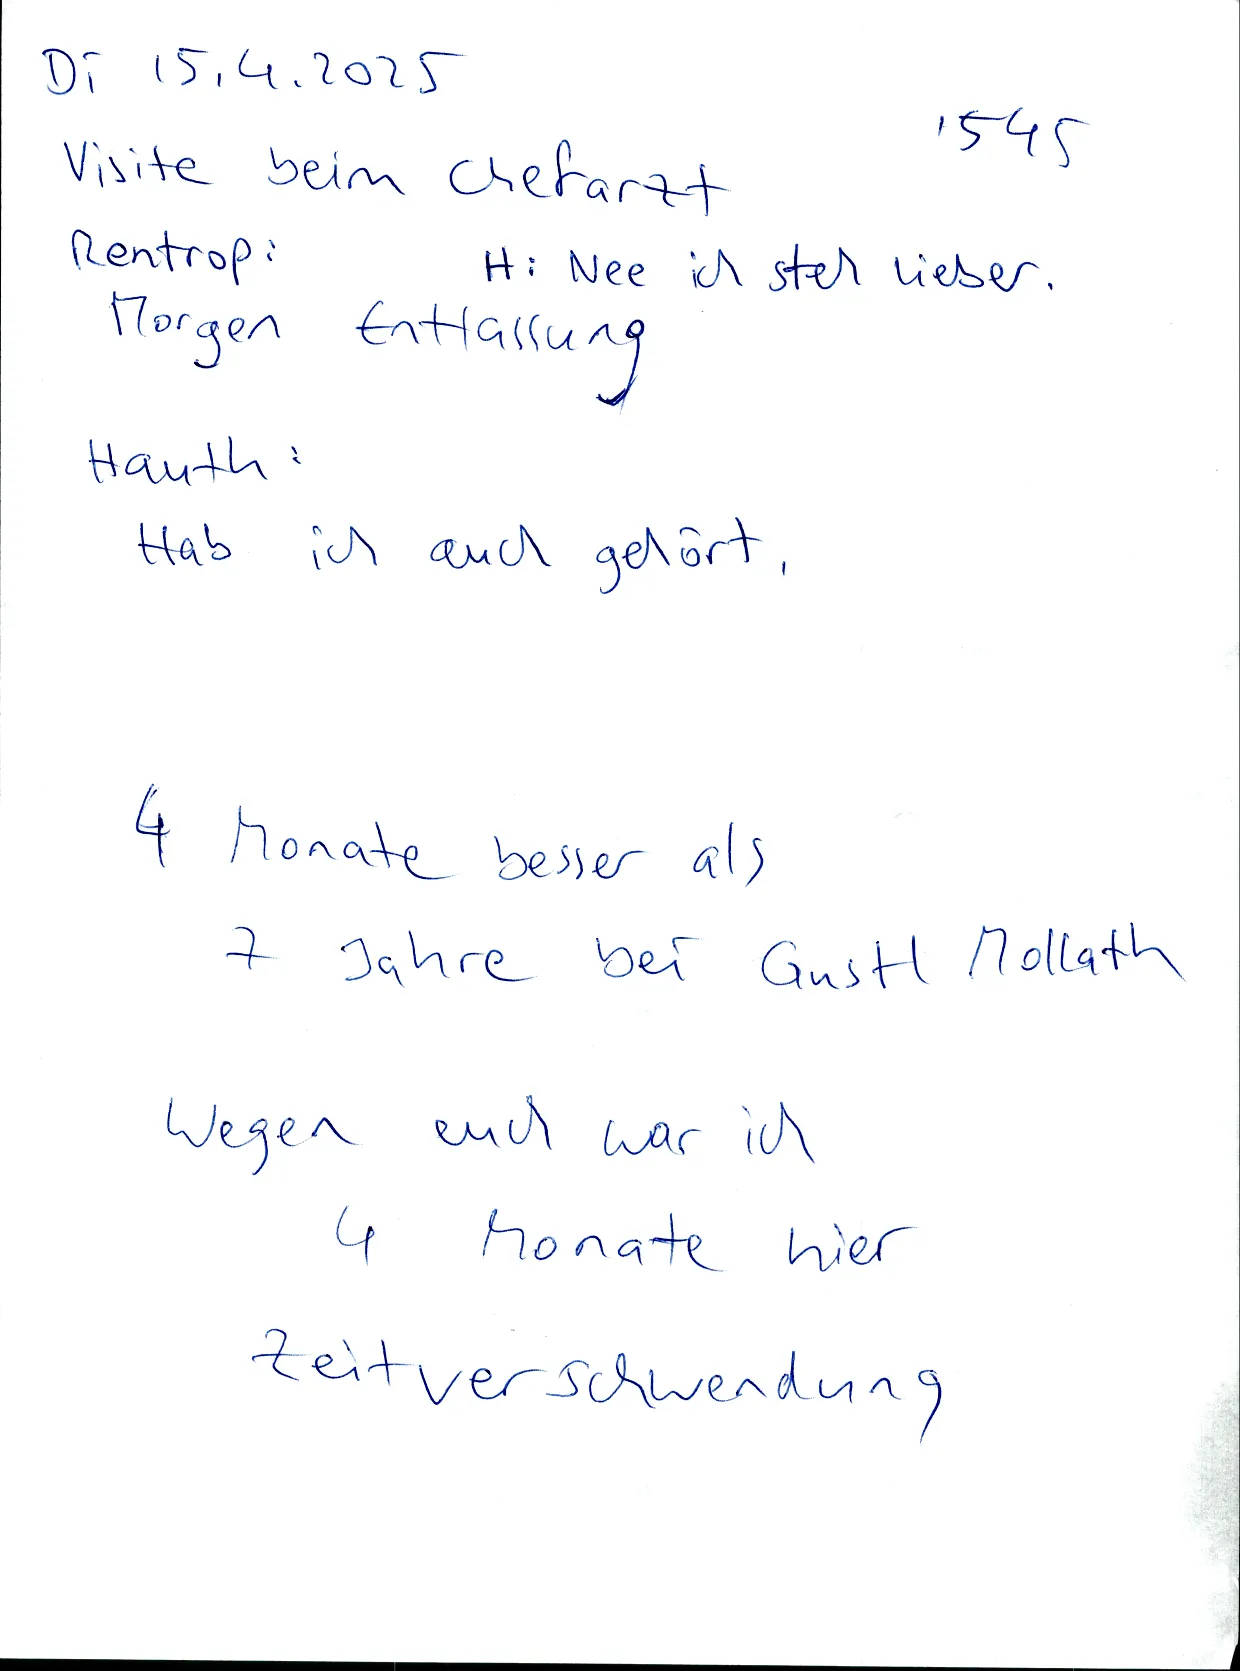 Di 15.4.2025
1545
Visite beim Chefarzt
Rentrop:
H: Nee ich steh lieber.
Morgen Entlassung
Hauth:
Hab ich auch gehört.
4 Monate besser als
7 Jahre bei Gustl Mollath
Wegen euch war ich
4 Monate hier
Zeitverschwendung